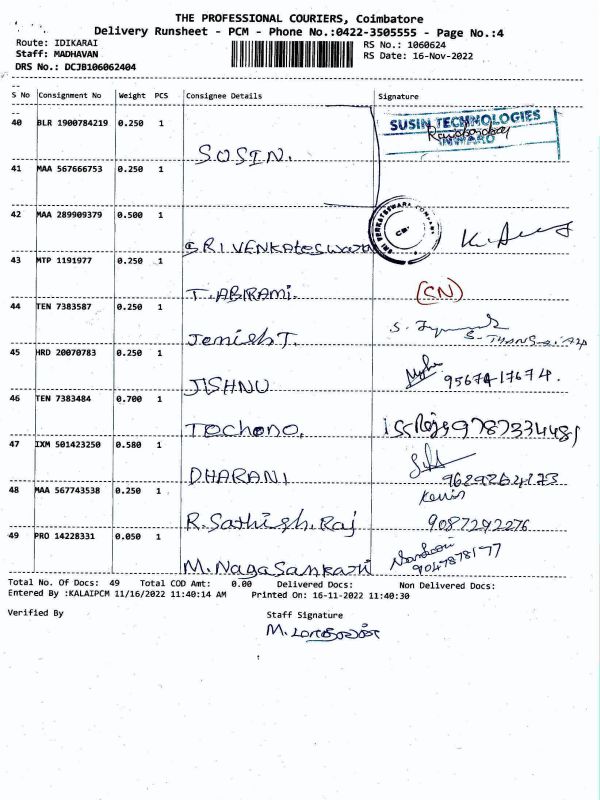 THE PROFESSIONAL COURIERS, Coimbatore
Delivery Runsheet - PCM - Phone No.:0422-3505555 - Page No.:4
Route: IDIKARAI
RS No.: 1060624
Staff: MADHAVAN
RS Date: 16-Nov-2022
DRS No.: DCJB106062404
S No Consignment No Weight PCS Consignee Details Signature
40 BLR 1900784219 0.250 1 SUSIN TECHNOLOGIES
INWARD
SOSIN.
41 MAA 567666753 0.250 1
42 MAA 289909379 0.500 1
SRI.VENKATESWARA
43 MTP 1191977 0.250 1
T. ABIRAMI. (SN)
44 TEN 7383587 0.250 1
Jenish T. S.
45 HRD 20070783 0.250 1
JISHNU 95674 17674.
46 TEN 7383484 0.700 1
Tochono. 9787334481
47 IXM 501423250 0.580 1
DHARANI 9629264173
48 MAA 567743538 0.250 1 Kevin
R. Sathish. Raj 9087292276
49 PRO 14228331 0.050 1
M. Naga Sankari 9047878177
Total No. Of Docs: 49 Total COD Amt: 0.00 Delivered Docs: Non Delivered Docs:
Entered By :KALAIPCM 11/16/2022 11:40:14 AM Printed On: 16-11-2022 11:40:30
Verified By Staff Signature